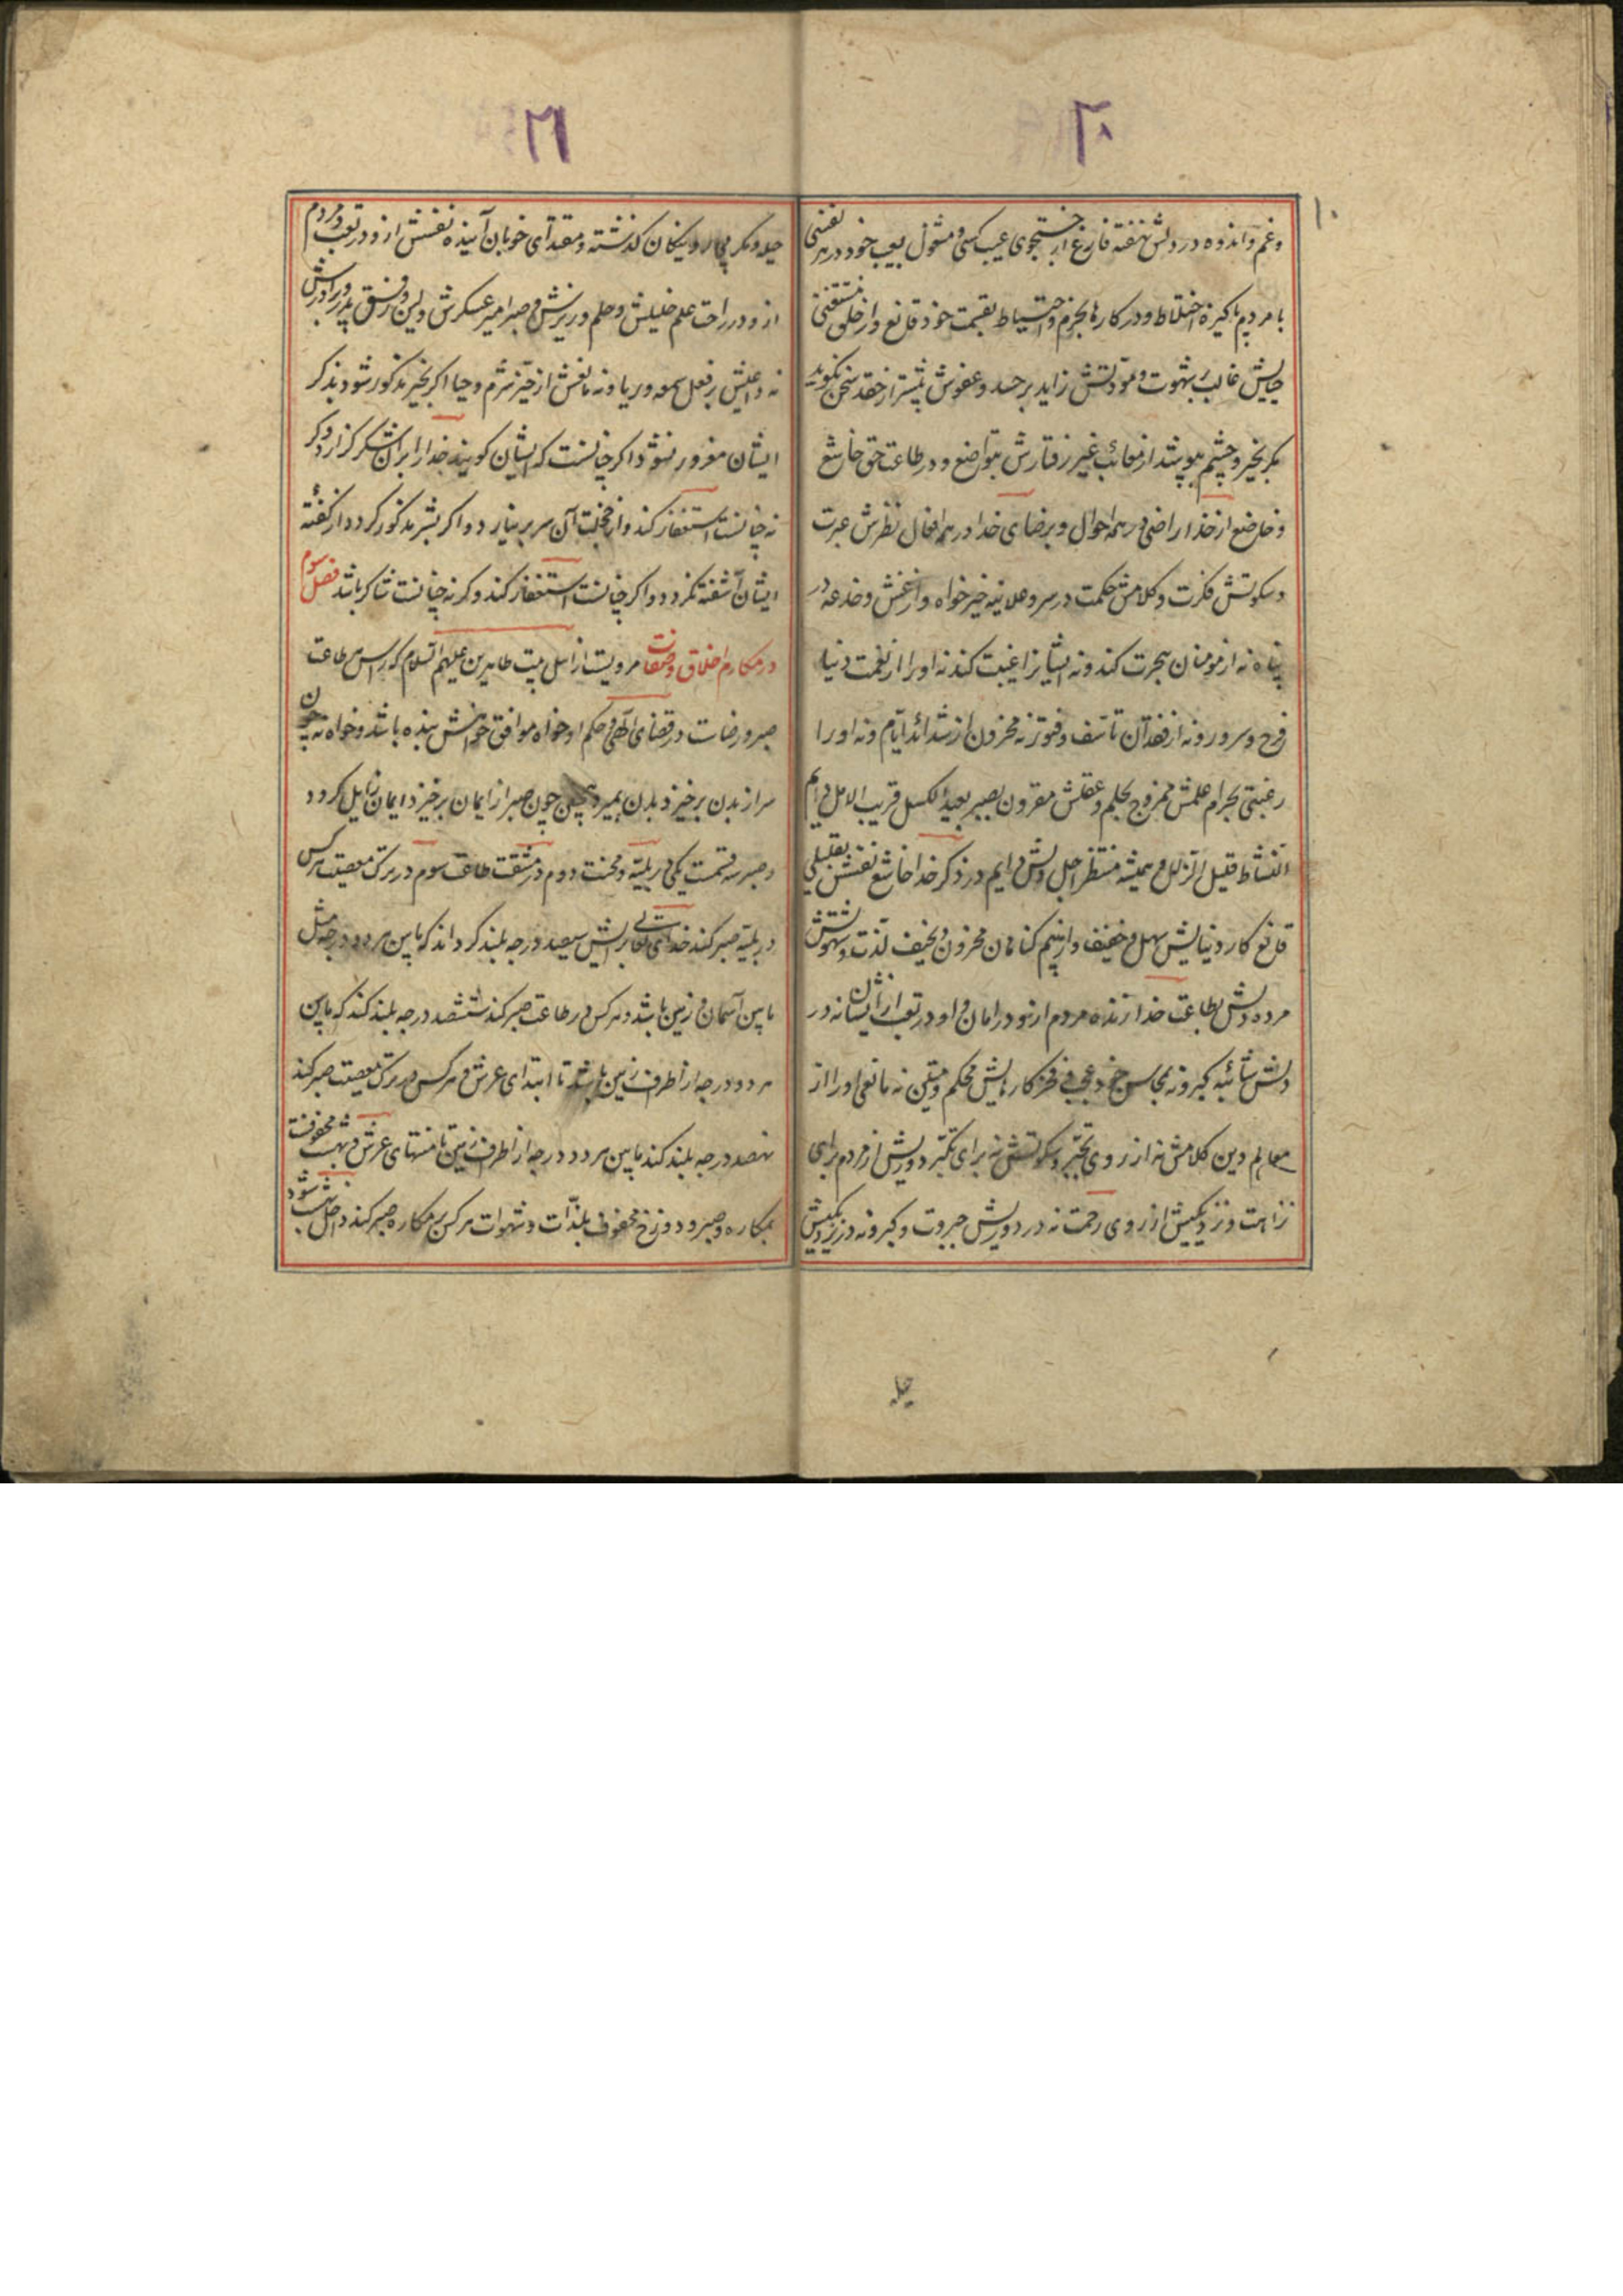 ۲۰
۱۰
وغم واندوه در دلش نهفته فارغ از جستجوی عیب کسی و مشغول بعیب خود در هر نفسی
با مردم پاکیزه اختلاط و در کارها بحزم واحتیاط بقسمت خود قانع واز خلق مستغنی
حیایش غالب بر شهوت و مودتش زاید بر حسد وعفوش بیشتر از حقد سخن نکوید
مکر بخیر و چشم بپوشد از معائب غیر رفتارش بتواضع و در طاعت حق خاشع
وخاضع از خدا راضی در همه احوال و برضای خدا در همه افعال نظرش عبرت
وسکوتش فکرت وکلامش حکمت در سر و علانیه خیرخواه واز غش وخدعه در
پناه نه از مومنان هجرت کند و نه ایشانرا غیبت کند نه او را از نعمت دنیا
فرح وسرور ونه از فقدان تاسف وفتور نه محزون از شدائد ایام ونه او را
رغبتی بحرام علمش ممزوج بحلم وعقلش مقرون بصبر بعید الکسل قریب الامل دایم
النشاط قلیل الزلل همیشه منتظر اجل دلش دایم در ذکر خدا خاشع نفسش بقلیلی
قانع کار دنیایش سهل و خفیف واز بیم کناهان محزون ونحیف لذت وشهوتش
مرده ودلش بطاعت خدا زنده مردم از او در امان و او در تعب از ایشان نه در
دلش شائبه کبر ونه بمحاسن خود عجب و فخر کارهایش محکم ومتین نه مانعی او را از
معالم دین کلامش نه از روی تجبر وسکوتش نه برای تکبر دوریش از مردم برای
نزاهت ونزدیکیش از روی رحمت نه در دوریش جبروت وکبر ونه در نزدیکیش
حیله
۲۱
حیله ومکر پی رو نیکان کذشته ومقتدای خوبان آینده نفسش از و در تعب و مردم
از و در راحت علم خلیلش وحلم وزیرش و صبر امیر عسکرش ولین و رفق پدر و برادرش
نه داعیش بر فعل سمعه وریا ونه مانعش از خیر شرم وحیا اکر بخیر مذکور شود بذکر
ایشان مغرور نشود اکر چنانست که ایشان کویند خدا را بر آن شکر گزارد وکر
نه چنانست استغفار کند واز خجلت آن سر بر نیارد واکر بشر مذکور کردد از کفته
ایشان آشفته نکردد واکر چنانست استغفار کند وکرنه چنانست شاکر باشد فصل سوم
در مکارم اخلاق وصفات مرویست از اهل بیت طاهرین علیهم السلام که راس طاعت
صبر ورضاست در قضای الهی و حکم او خواه موافق خواهش بنده باشد وخواه نه چون
سر از بدن برخیزد بدن بمیرد همچنین چون صبر از ایمان برخیزد ایمان زایل کردد
وصبر سه قسمت یکی در بلیه ومحنت دوم در مشقت طاعت سوم در ترک معصیت هر کس
در بلیه صبر کند خدای تعالی برایش سیصد درجه بلند کرداند که مابین هر دو درجه مثل
مابین آسمان و زمین باشد وهر کس در طاعت صبر کند ششصد درجه بلند کند که مابین
هر دو درجه از اطراف زمین باشد تا ابتدای عرش و هر کس در ترک معصیت صبر کند
نهصد درجه بلند کند مابین هر دو درجه از اطراف زمین تا منتهای عرش وبهشت محفوفت
بمکاره وصبر و دوزخ محفوف بلذات وشهوات هر کس بر مکاره صبر کند داخل بهشت شود